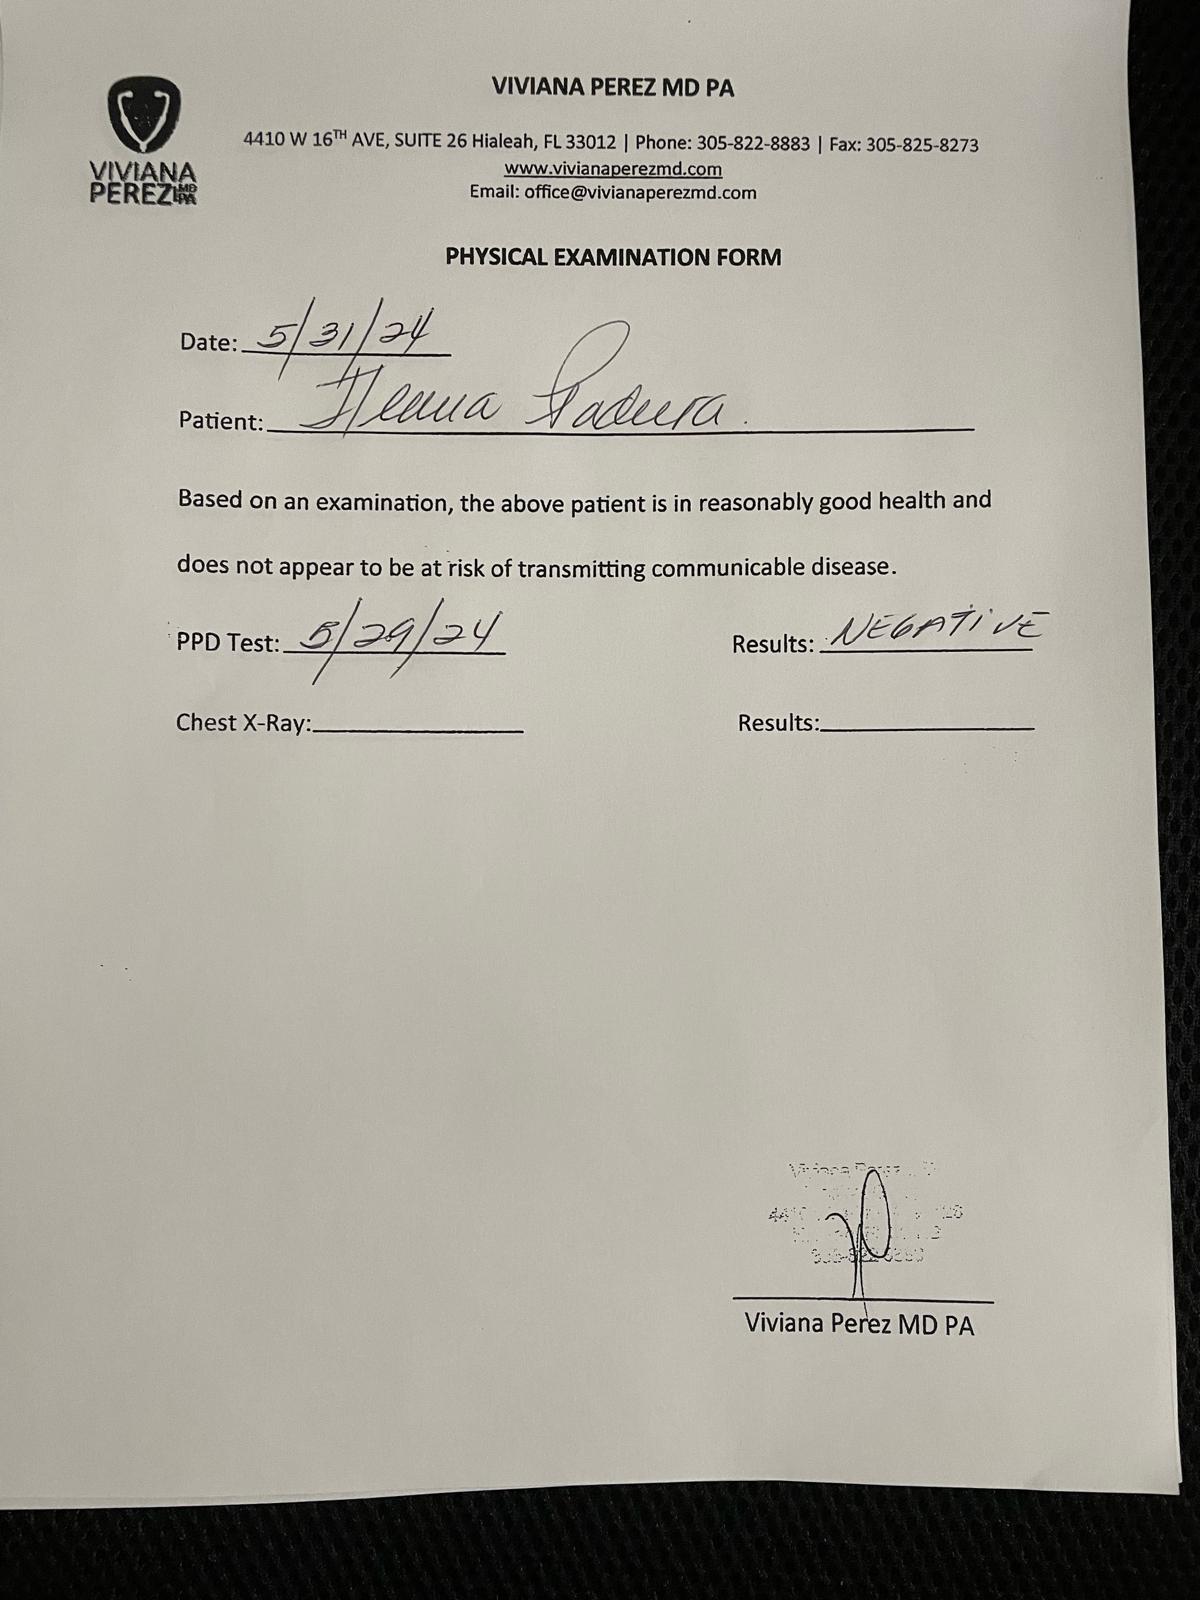 VIVIANA PEREZ MD PA
4410 W 16TH AVE, SUITE 26 Hialeah, FL 33012 | Phone: 305-822-8883 | Fax: 305-825-8273
www.vivianaperezmd.com
Email: office@vivianaperezmd.com
VIVIANA
PEREZ MD PA
PHYSICAL EXAMINATION FORM
Date: 5/31/24
Patient: Ileana Padura.
Based on an examination, the above patient is in reasonably good health and
does not appear to be at risk of transmitting communicable disease.
PPD Test: 5/29/24 Results: NEGATIVE
Chest X-Ray: Results:
Viviana Perez MD PA